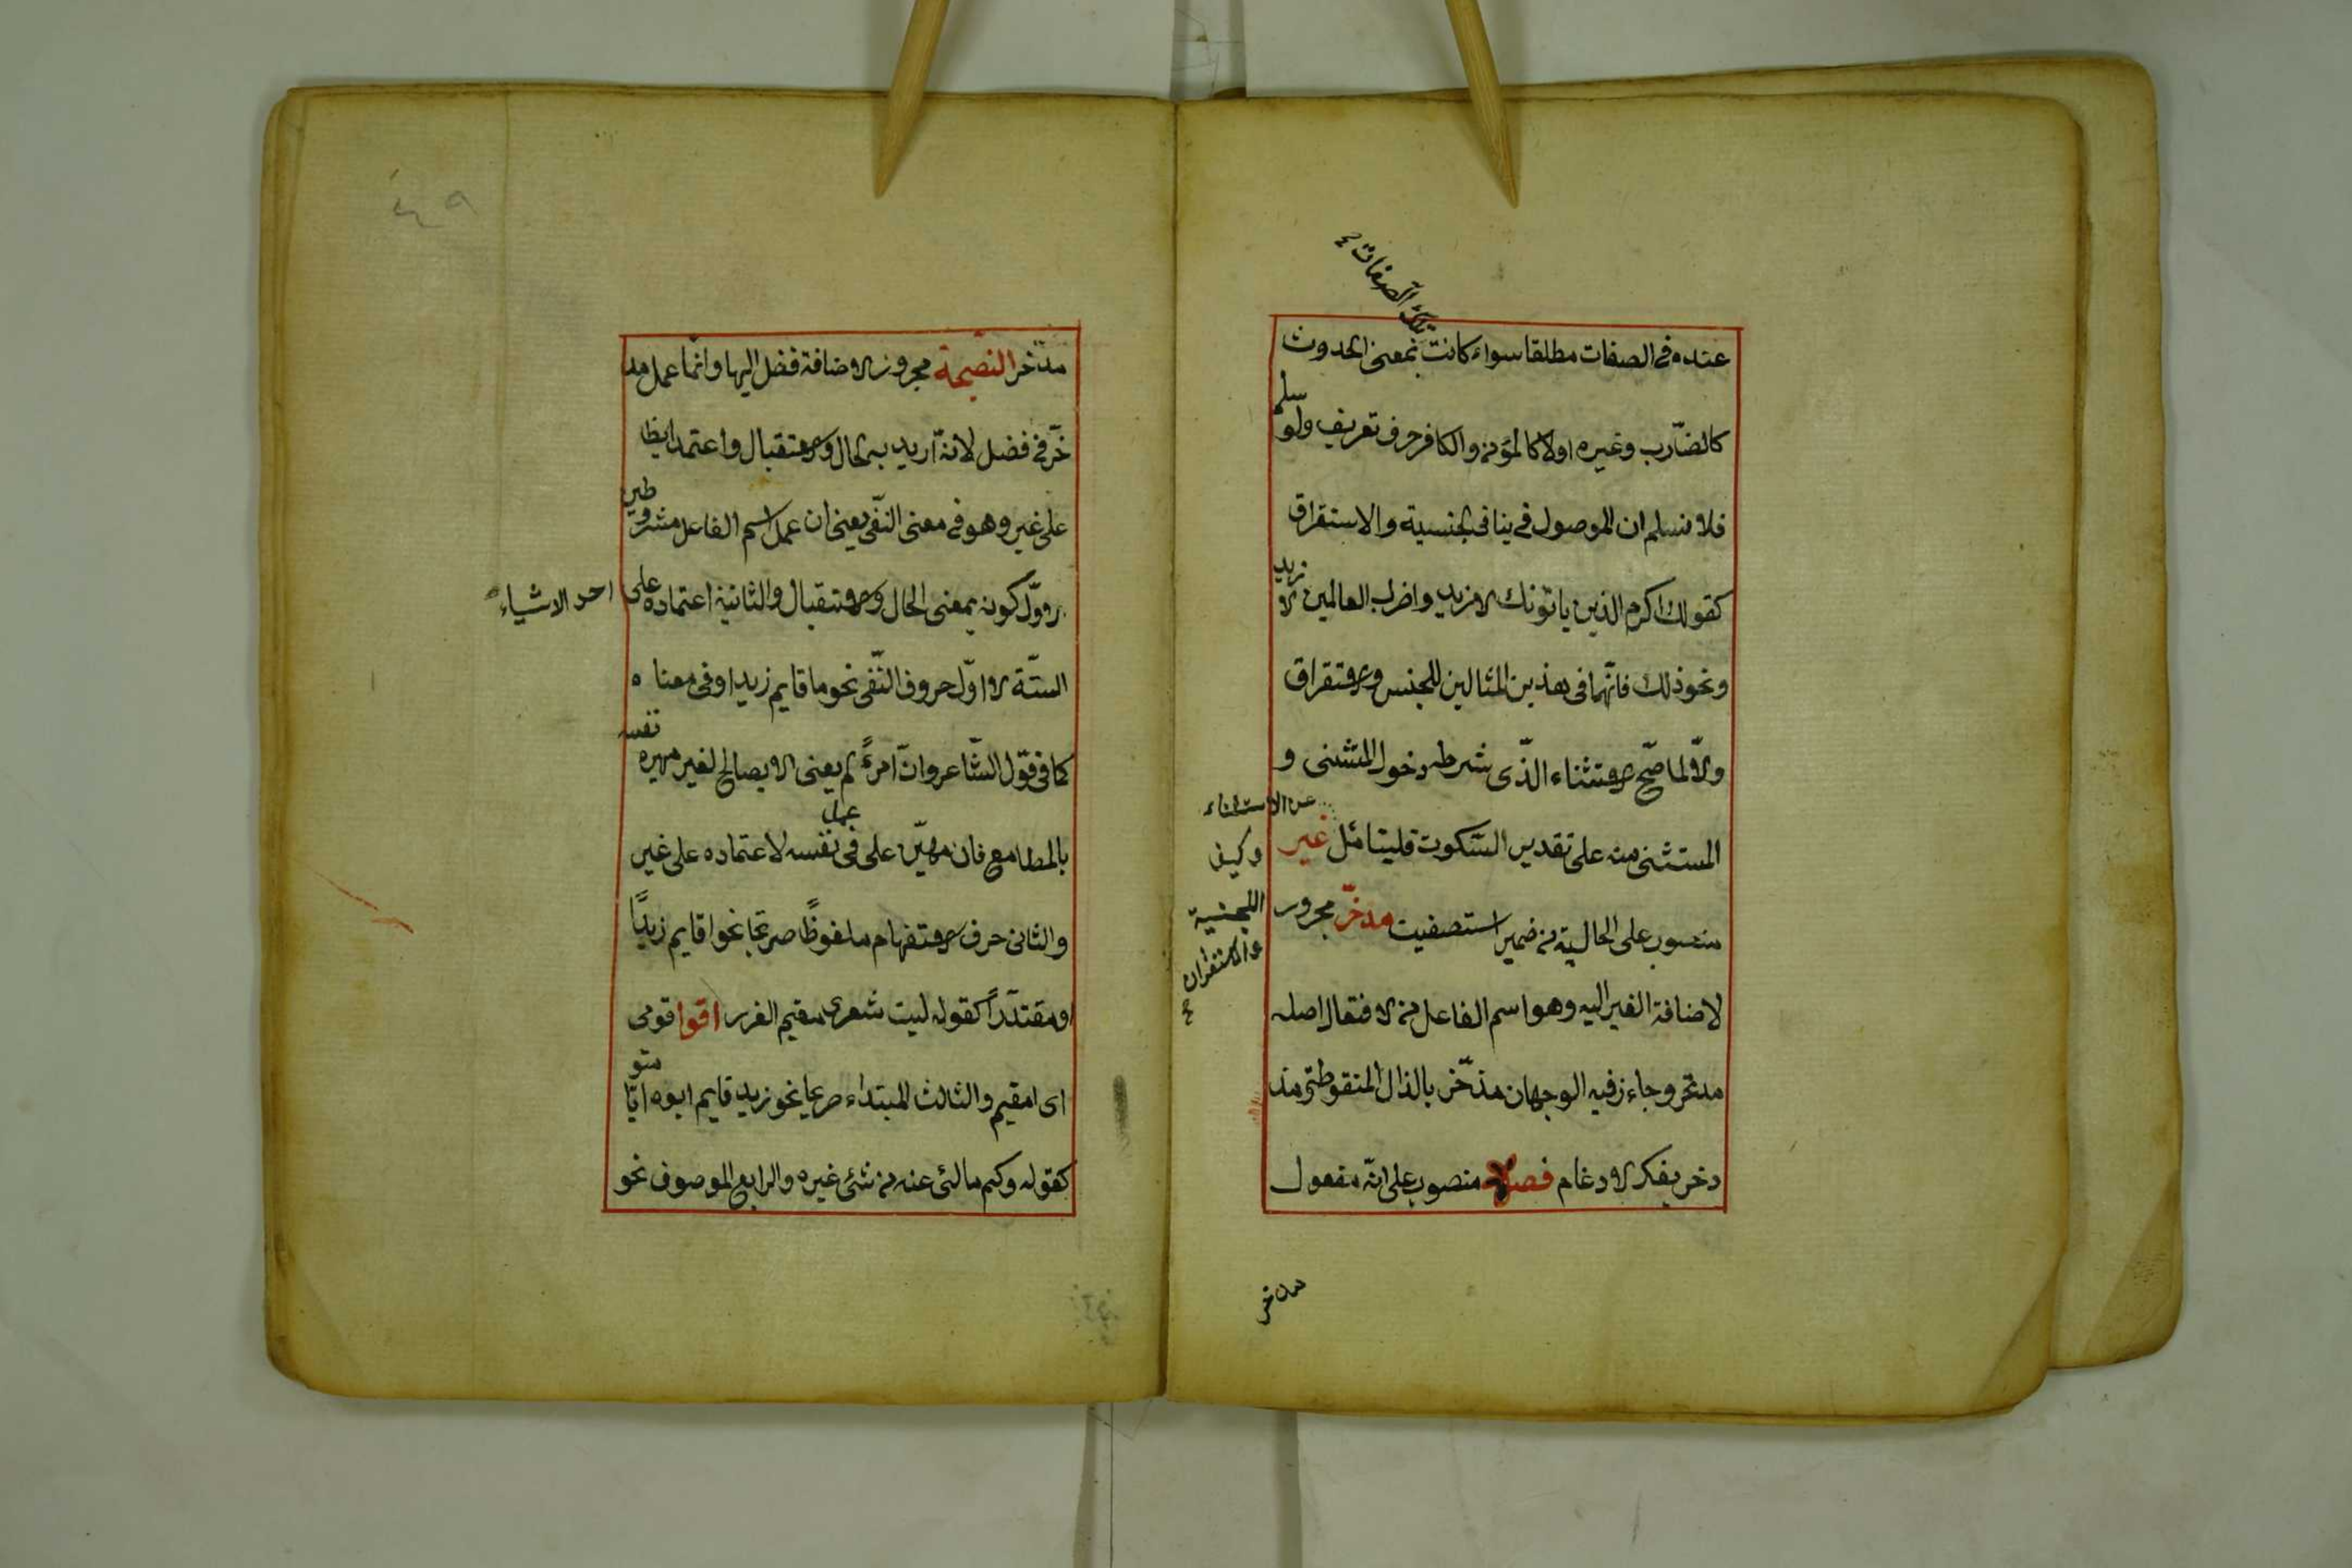 عنده فى الصفات مطلقا سواء كانت بمعنى الحدوث
تلك الصفات
كالضّارب وغيره اولا كالمؤمن والكافر حرف تعريف ولو سلم
فلا نسلم ان الموصول فى ينافى الجنسية والاستقراق
كقولك اكرم الذين ياتونك الا زيد واضرب العالمين الا زيد
ونحو ذلك فانّهما فى هذين المثالين للجنس والاستقراق
والّا لما صّح الاستثناء الذّى شرطه دخول المتثنى و
المستثنى منه على تقدير السّكوت فليتامّل غير
عن الاستثناء
وكيف
اللجنسية
والاستغراق
منصوب على الحالية من ضمير استصفيت مدخّر مجرور
لاضافة الغير اليه وهو اسم الفاعل من الافتعال اصله
مدتخر وجاء فيه الوجهان مذّخر بالذال المنقوطة ومذ
دخر بفك الادغام فصلا منصوب على انّه مفعول
مدّخر
مدّخر النصيحة مجرور الاضافة فضل اليها وانّما عمل مد
خّر فى فضل لانّه اريد به الحال والاستقبال واعتمد ايظا
على غير وهو فى معنى النّفى يعنى ان عمل اسم الفاعل مشروطين
الاوّل كونه بمعنى الحال والاستقبال والثانية اعتماده على احد الاشياء
الستّة الاوّل حروف النّفى نحو ما قايم زيد او فى معناه
كما فى قول الشّاعر وانّ امرءً لم يعنى الا بصالح لغير مهيره نفسه
بالمطامع فان مهيّن على فى نفسه لاعتماده على غير
عمل
والثانى حرف الاستفهام ملفوظًا صريحا نحو اقايم زيدًا
او مقتدّرًا كقوله ليت شعرى مقيم الغرر اقوا قومى
اى امقيم والثالث المبتداء صريحا نحو زيد قايم ابوه امّا
منو
كقوله وكم مالئ عنه من شئى غيره والرابع الموصوف نحو